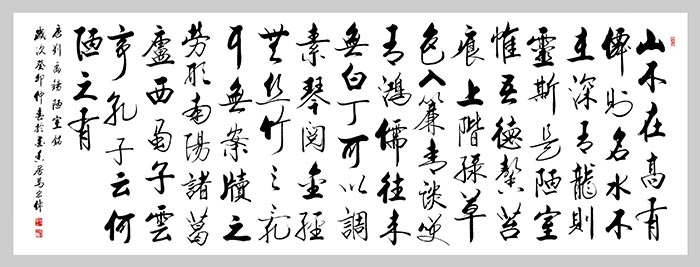 山不在高有
僊則名水不
在深有龍則
靈斯是陋室
惟吾德馨苔
痕上階綠草
色入簾青談笑
有鴻儒往來
無白丁可以調
素琴閱金經
無絲竹之亂
耳無案牘之
勞形南陽諸葛
廬西蜀子雲
亭孔子云何
陋之有
唐劉禹錫陋室銘
歲次癸卯仲春於墨香居馬